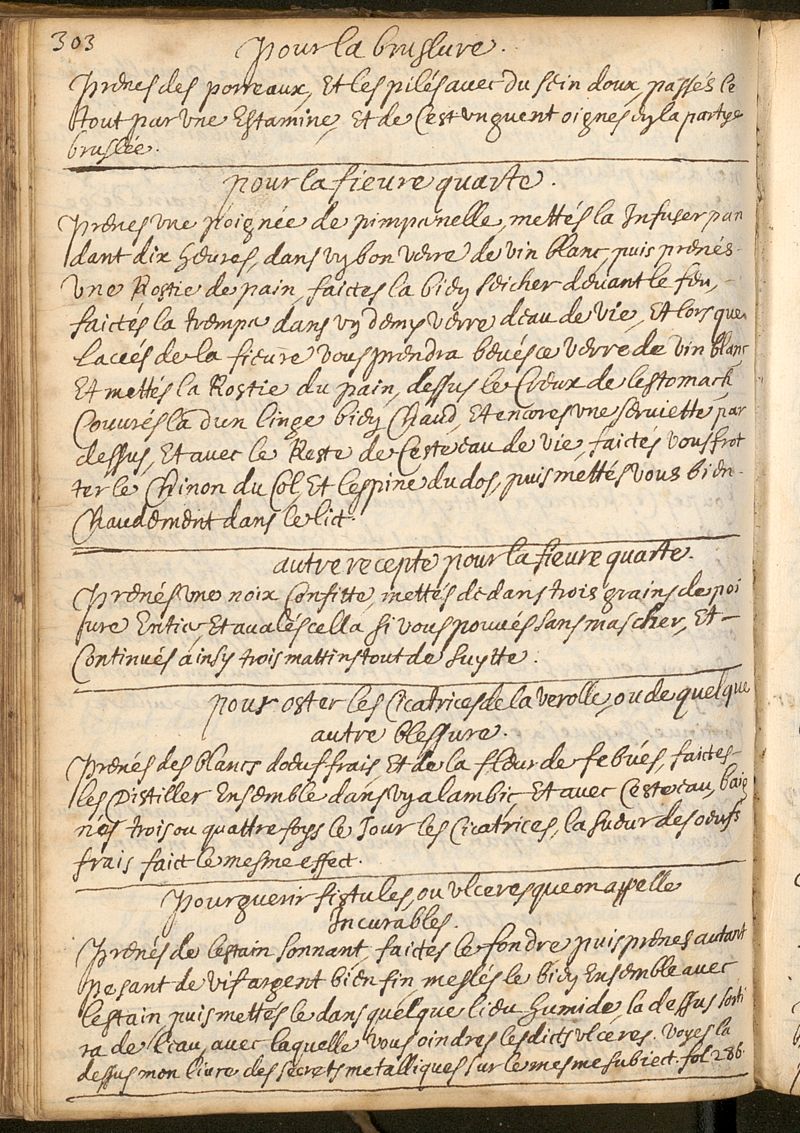 303
Pour la bruslure.
Prenes des porreaux, Et les pilés avec du sein doux, passés le
tout par une Estamine, Et de Cest unguent oignes en la partye
bruslée.
pour la fieure quarte.
Prenes une poignée de pimpanelle, mettés la Infuser pan
dant dix heures, dans un bon verre de vin blanc, puis prenés
une Rostie de pain, faictes la bien seicher devant le feu,
faictes la trempa dans un demy verre deau de vie, Et lors que
laccés de la fieure vous prendra beuésce verre de vin blanc
Et mettés la Rostie du pain, dessus le Creux de lestomach
Couurés la dun linge bien Chaud, Et encores une seruiette par
dessus, Et avec le Reste de Ceste eau de vie, faictes vous frot
ter le Chinon du Col, Et lespine du dos, puis mettés vous bien
Chaudement dans le lict.
autre recepte pour la fieure quarte.
Prenés une noix Confitte, mettés dedans trois grains de poi
sure Entier, Et aualés cella si vous pouués sans mascher, Et
Continués ainsy trois mattins tout de suytte.
pour oster les Cicatrices de la verolle, ou de quelque
autre blessure.
Prenés des blancs doeuf frais, Et de la fleur de febues, faictes
les Distiller Ensemble dans un alambic, Et avec Ceste eau, baig
nés trois ou quattre foys le Jour les Cicatrices, la sueur des oeufs
frais faict le mesme effect.
Pour guerir fistules, ou ulceres que on appelle
Incurables.
Prenés de lestain sonnant, faictes le fondre puis prenes autant
pesant de vif argent bien fin, meslés le bien Ensemble avec
lestain puis mettés le dans quelque lieu humide, la dessus sorti
ra de leau, avec laquelle vous oindres lesdicts ulceres. voyes la
dessus mon liure des secrets metalliques sur le mesme subiect. fol 286.